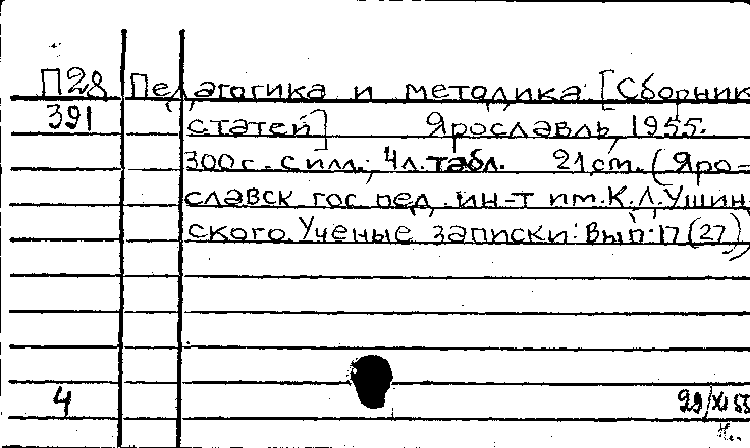 П28 Педагогика и методика. [Сборник
391 статей] Ярославль, 1955.
300 с. с илл.; 4 л. табл. 21 cm. (Яро=
славск. гос. пед. ин-т им. К.Д. Ушин
ского. Ученые записки. Вып. 17 (27))
4 29/XI 55